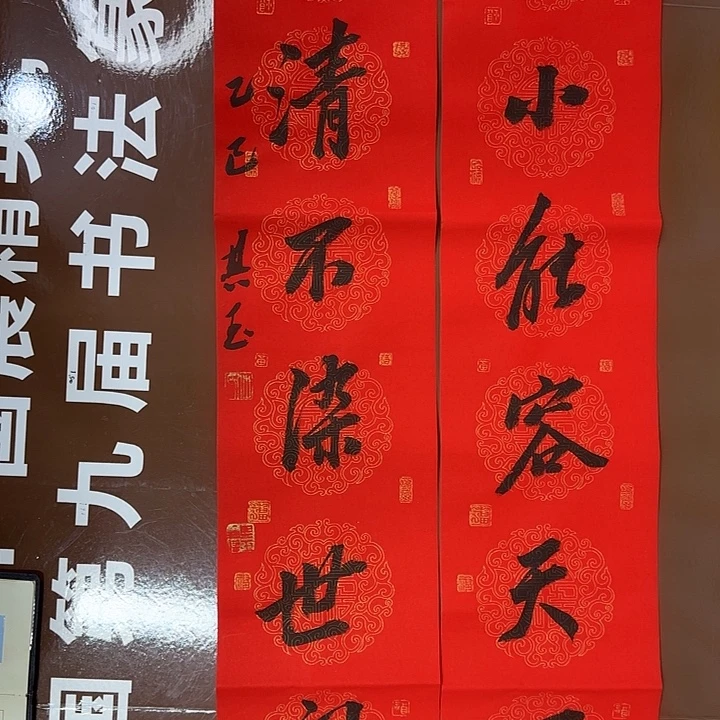 小能容天
清不染世
乙巳 其玉
国第九届书法家
国展精